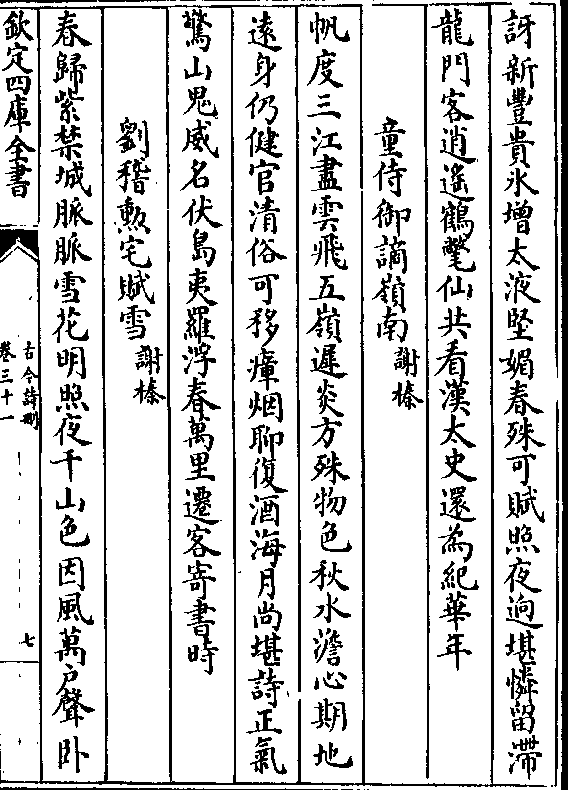 訝新豐貴氷增太液堅媚春殊可賦照夜逈堪憐留滯
龍門客逍遙鶴氅仙共看漢太史還為紀華年
童侍御謫嶺南 謝榛
帆度三江盡雲飛五嶺遲炎方殊物色秋水澹心期地
遠身仍健官清俗可移瘴烟聊復酒海月尚堪詩正氣
驚山鬼威名伏島夷羅浮春萬里遷客寄書時
劉稽勲宅賦雪 謝榛
春歸紫禁城脈脈雪花明照夜千山色因風萬戶聲卧
欽定四庫全書
古今詩刪
卷三十一
七